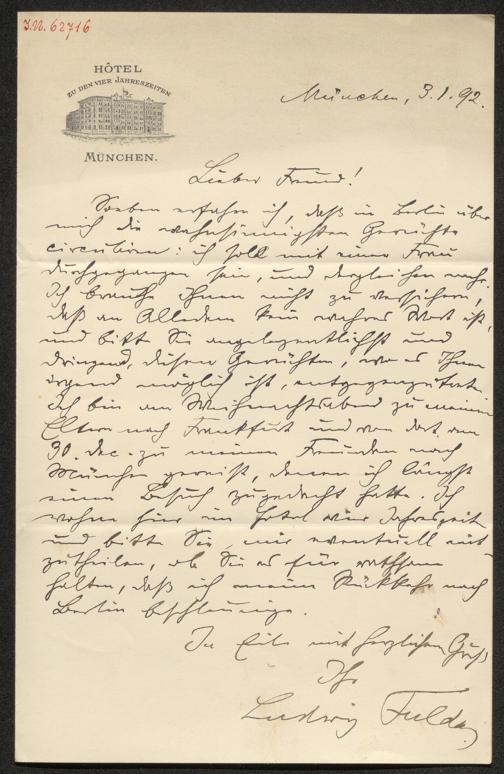 I.N. 62716
HÔTEL
ZU DEN VIER JAHRESZEITEN
MÜNCHEN.
München, 3.1.92.
Lieber Freund!
Soeben erfahre ich, daß in Berlin über
mich die wahnsinnigsten Gerüchte
circuliren: ich soll mit einer Frau
durchgegangen sein, und dergleichen mehr.
Ich brauche Ihnen nicht zu versichern,
daß an Alledem kein wahres Wort ist,
und bitte Sie angelegentlichst und
dringend, diesen Gerüchten, wo es Ihnen
irgend möglich ist, entgegenzutreten.
Ich bin am Weihnachtsabend zu meinen
Eltern nach Frankfurt und von dort am
30. Dec. zu meinen Freunden nach
München gereist, denen ich längst
einen Besuch zugedacht hatte. Ich
wohne hier im Hotel vier Jahreszeiten
und bitte Sie, mir eventuell mit-
zutheilen, ob Sie es für rathsam
halten, daß ich meine Rückkehr nach
Berlin beschleunige.
In Eile mit herzlichem Gruß
Ihr
Ludwig Fulda